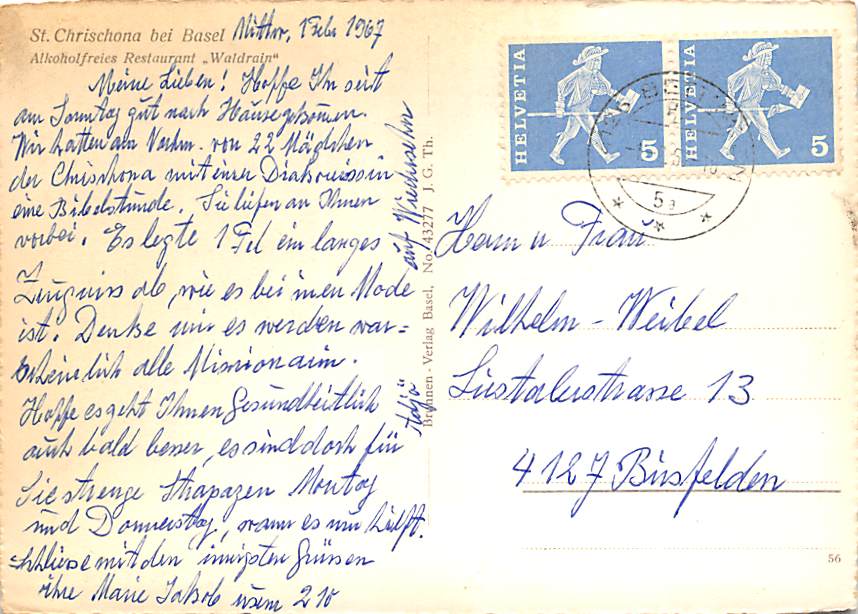 St. Chrischona bei Basel Mittw. 1 Febr 1967
Alkoholfreies Restaurant „Waldrain“
Meine Lieben! Hoffe Ihr seit
am Sonntag gut nach Hause gekommen.
Wir hatten am Nachm. von 22 Mädchen
der Chrischona mit einer Diakonissin
eine Bibelstunde. Sie liefen an Ihnen
vorbei. Es legte 1 Frl ein langes
Zeugniss ab, wie es bei inen Mode
ist. Denke mir es werden war=
scheinlich alle Missionarin.
Hoffe es geht Ihnen Gesundheitlich
auch bald besser, es sind doch für
Sie strenge Strapazen Montag
und Donnerstag, wann es nur hilft.
schliesse mit den innigsten Grüssen
ihre Marie Jakob 210
auf Wiedersehn
Adjö
Brunnen-Verlag Basel, No. 43277 J. G. Th.
HELVETIA 5
HELVETIA 5
5a
Herrn u Frau
Wilhelm - Weibel
13
4127 Birsfelden
56